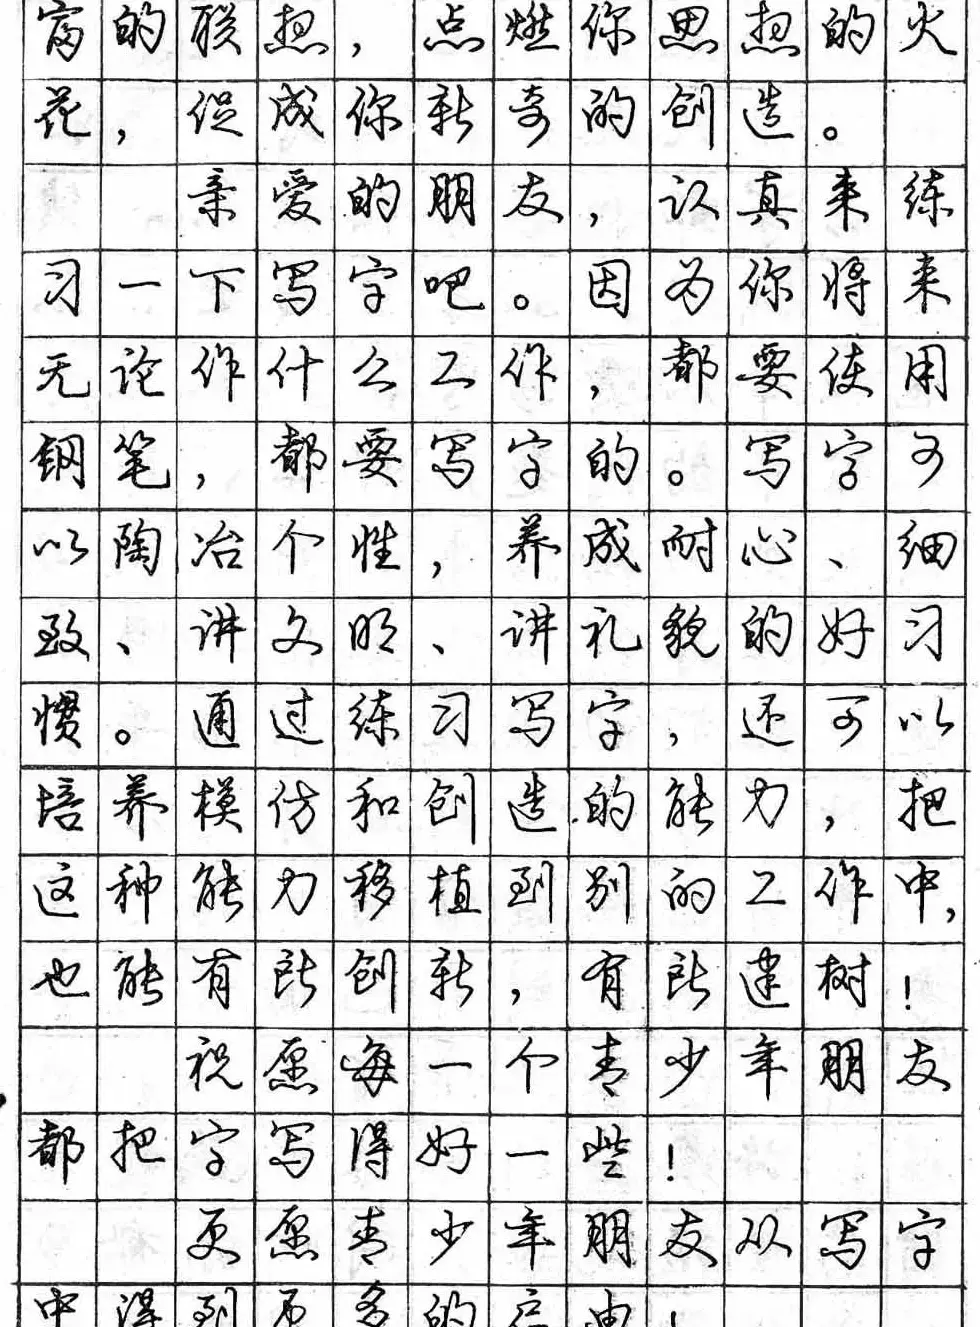 富的联想，点燃你思想的火
花，促成你新奇的创造。
亲爱的朋友，认真来练
习一下写字吧。因为你将来
无论作什么工作，都要使用
钢笔，都要写字的。写字可
以陶冶个性，养成耐心、细
致、讲文明、讲礼貌的好习
惯。通过练习写字，还可以
培养模仿和创造的能力，把
这种能力移植到别的工作中，
也能有所创新，有所建树！
祝愿每一个青少年朋友
都把字写得好一些！
更愿青少年朋友从写字
中得到更多的